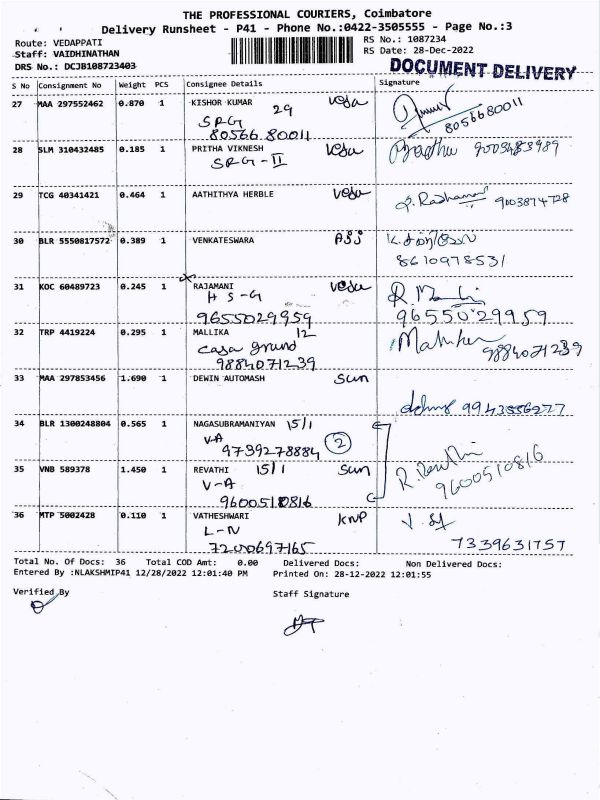 THE PROFESSIONAL COURIERS, Coimbatore
Delivery Runsheet - P41 - Phone No.:0422-3505555 - Page No.:3
Route: VEDAPPATI RS No.: 1087234
Staff: VAIDHINATHAN RS Date: 28-Dec-2022
DRS No.: DCJB108723403 DOCUMENT DELIVERY
S No Consignment No Weight PCS Consignee Details Signature
27 MAA 297552462 0.870 1 KISHOR KUMAR 29 veda
SRG
80566 80011 8056680011
28 SLM 310432485 0.185 1 PRITHA VIKNESH veda
SRG-II 9003483989
29 TCG 40341421 0.464 1 AATHITHYA HERBLE veda
9003874728
30 BLR 5550817572 0.389 1 VENKATESWARA
8610978531
31 KOC 60489723 0.245 1 RAJAMANI veda
H S-G
9655029959 9655029959
32 TRP 4419224 0.295 1 MALLIKA 12
casa grand
9884071239 9884071239
33 MAA 297853456 1.690 1 DEWIN AUTOMASH sun
34 BLR 1300248804 0.565 1 NAGASUBRAMANIYAN 15/1
V-A
9739278884 2
35 VNB 589378 1.450 1 REVATHI 15/1 sun
V-A
9600510816 9600510816
36 MTP 5002428 0.110 1 VATHESHWARI KNP
L-N
7200697165 7339631757
Total No. Of Docs: 36 Total COD Amt: 0.00 Delivered Docs: Non Delivered Docs:
Entered By :NLAKSHMIP41 12/28/2022 12:01:40 PM Printed On: 28-12-2022 12:01:55
Verified By Staff Signature